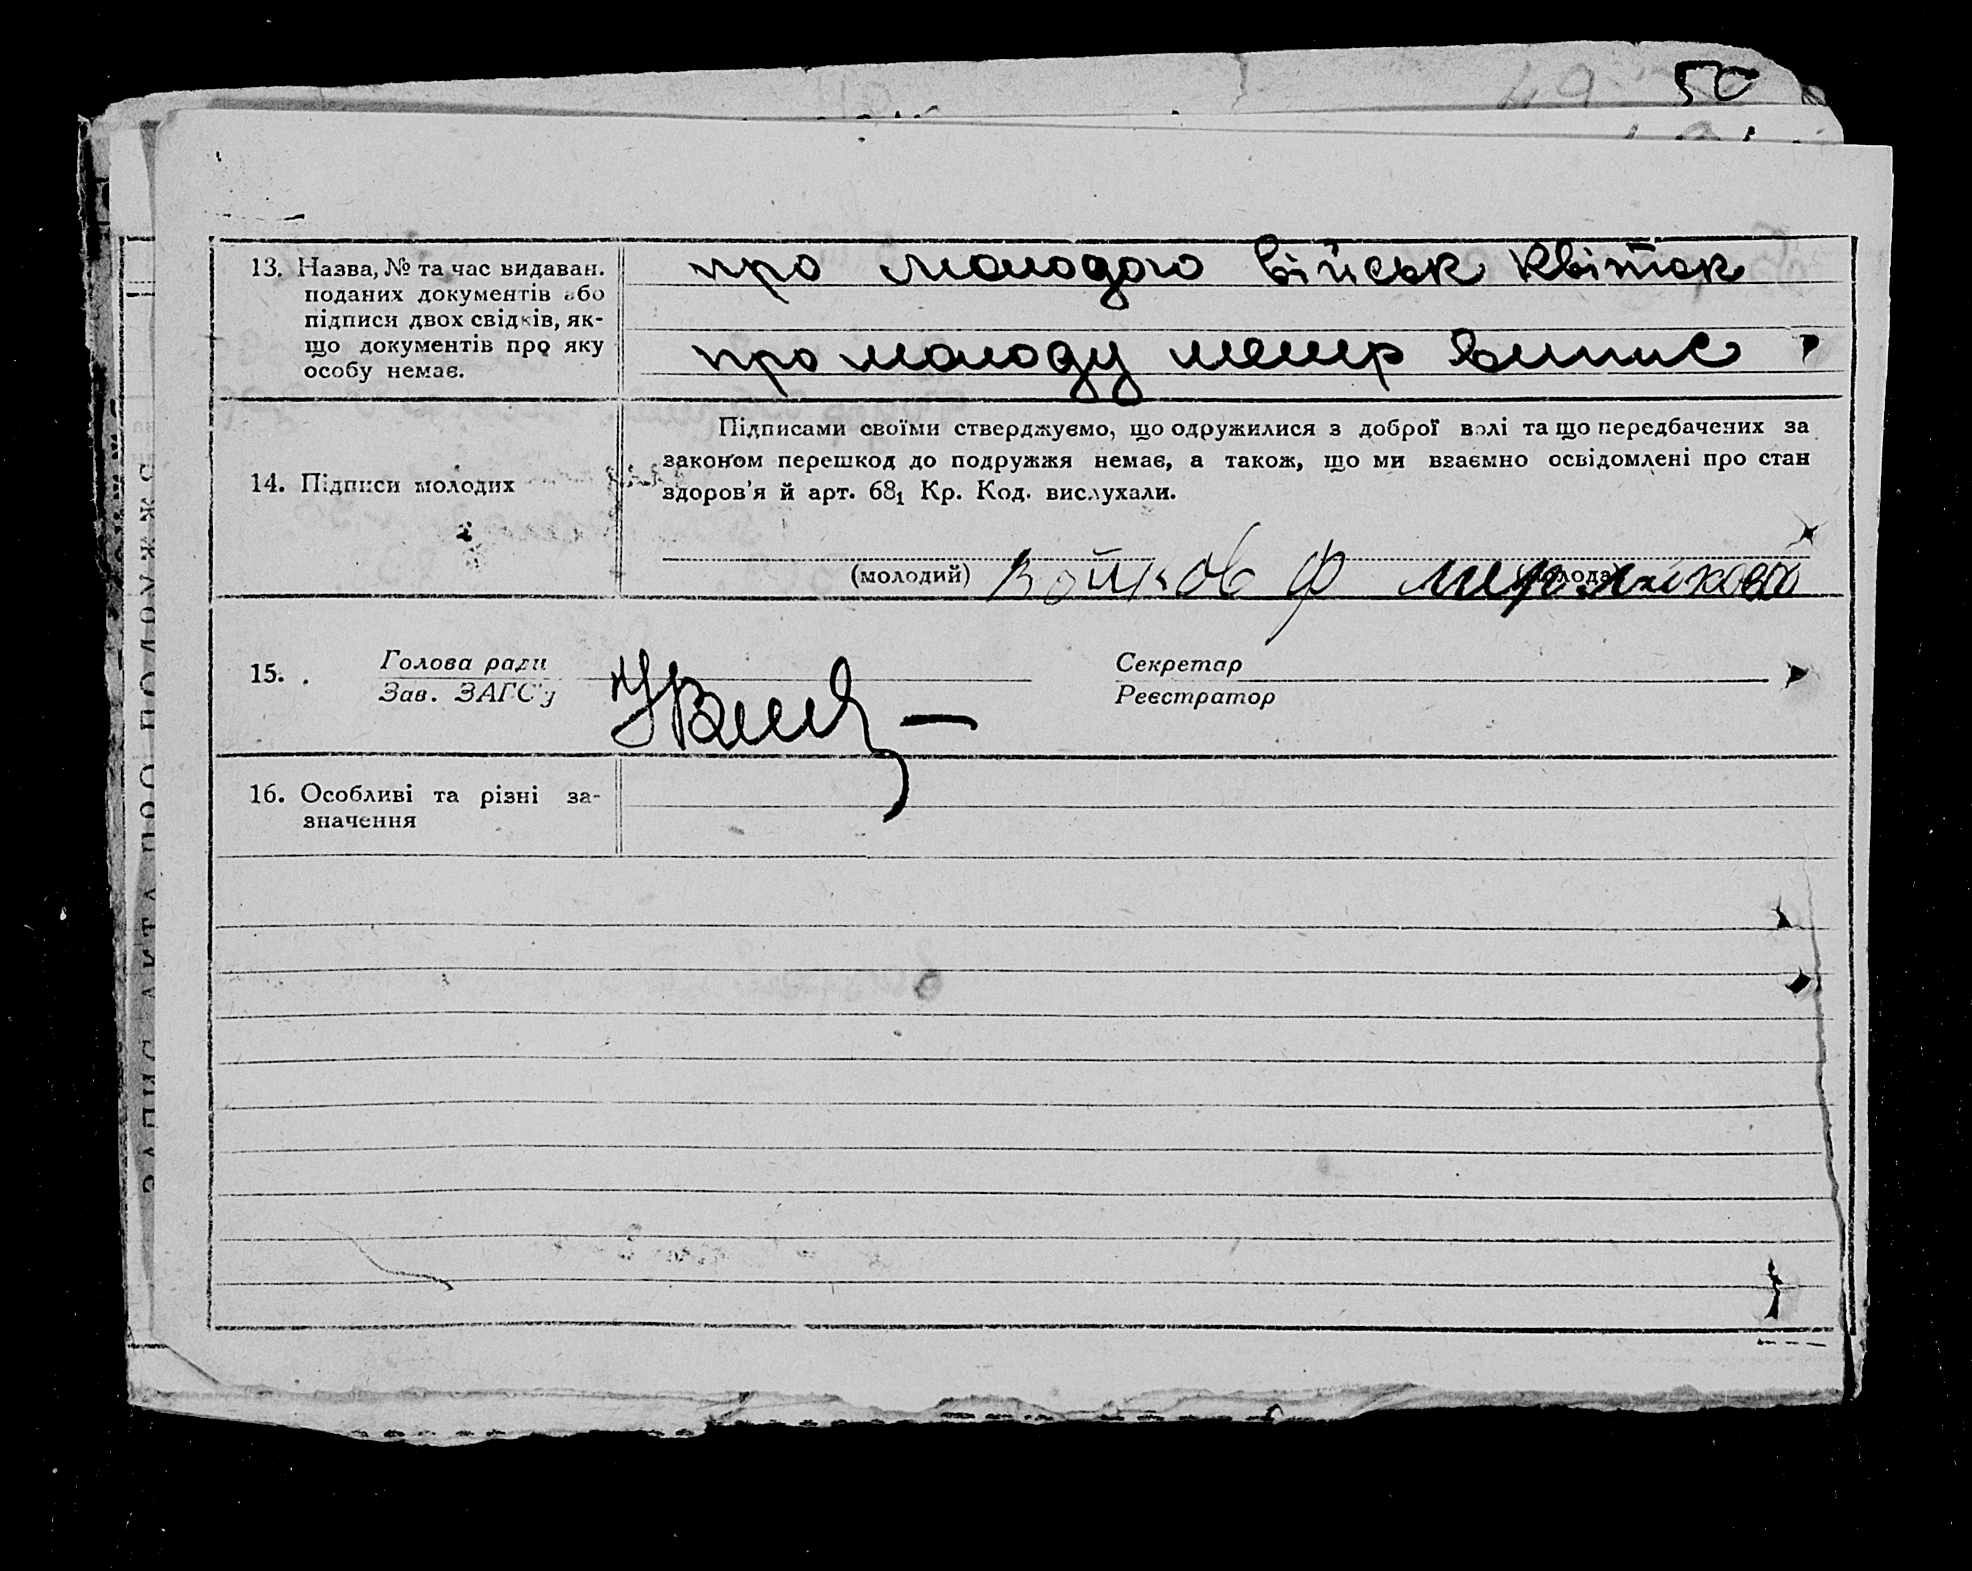 50
13. Назва, № та час видаван. поданих документів або підписи двох свідків, якщо документів про яку особу немає.
про молодого військ квіток
про молоду метр випис
14. Підписи молодих
Підписами своїми стверджуємо, що одружилися з доброї волі та що передбачених за
законом перешкод до подружжя немає, а також, що ми взаємно освідомлені про стан
здоров'я й арт. 68₁ Кр. Код. вислухали.
(молодий) Войков Ф (молода)
15. Голова ради
Зав. ЗАГС'у
Секретар
Реєстратор
16. Особливі та різні зазначення